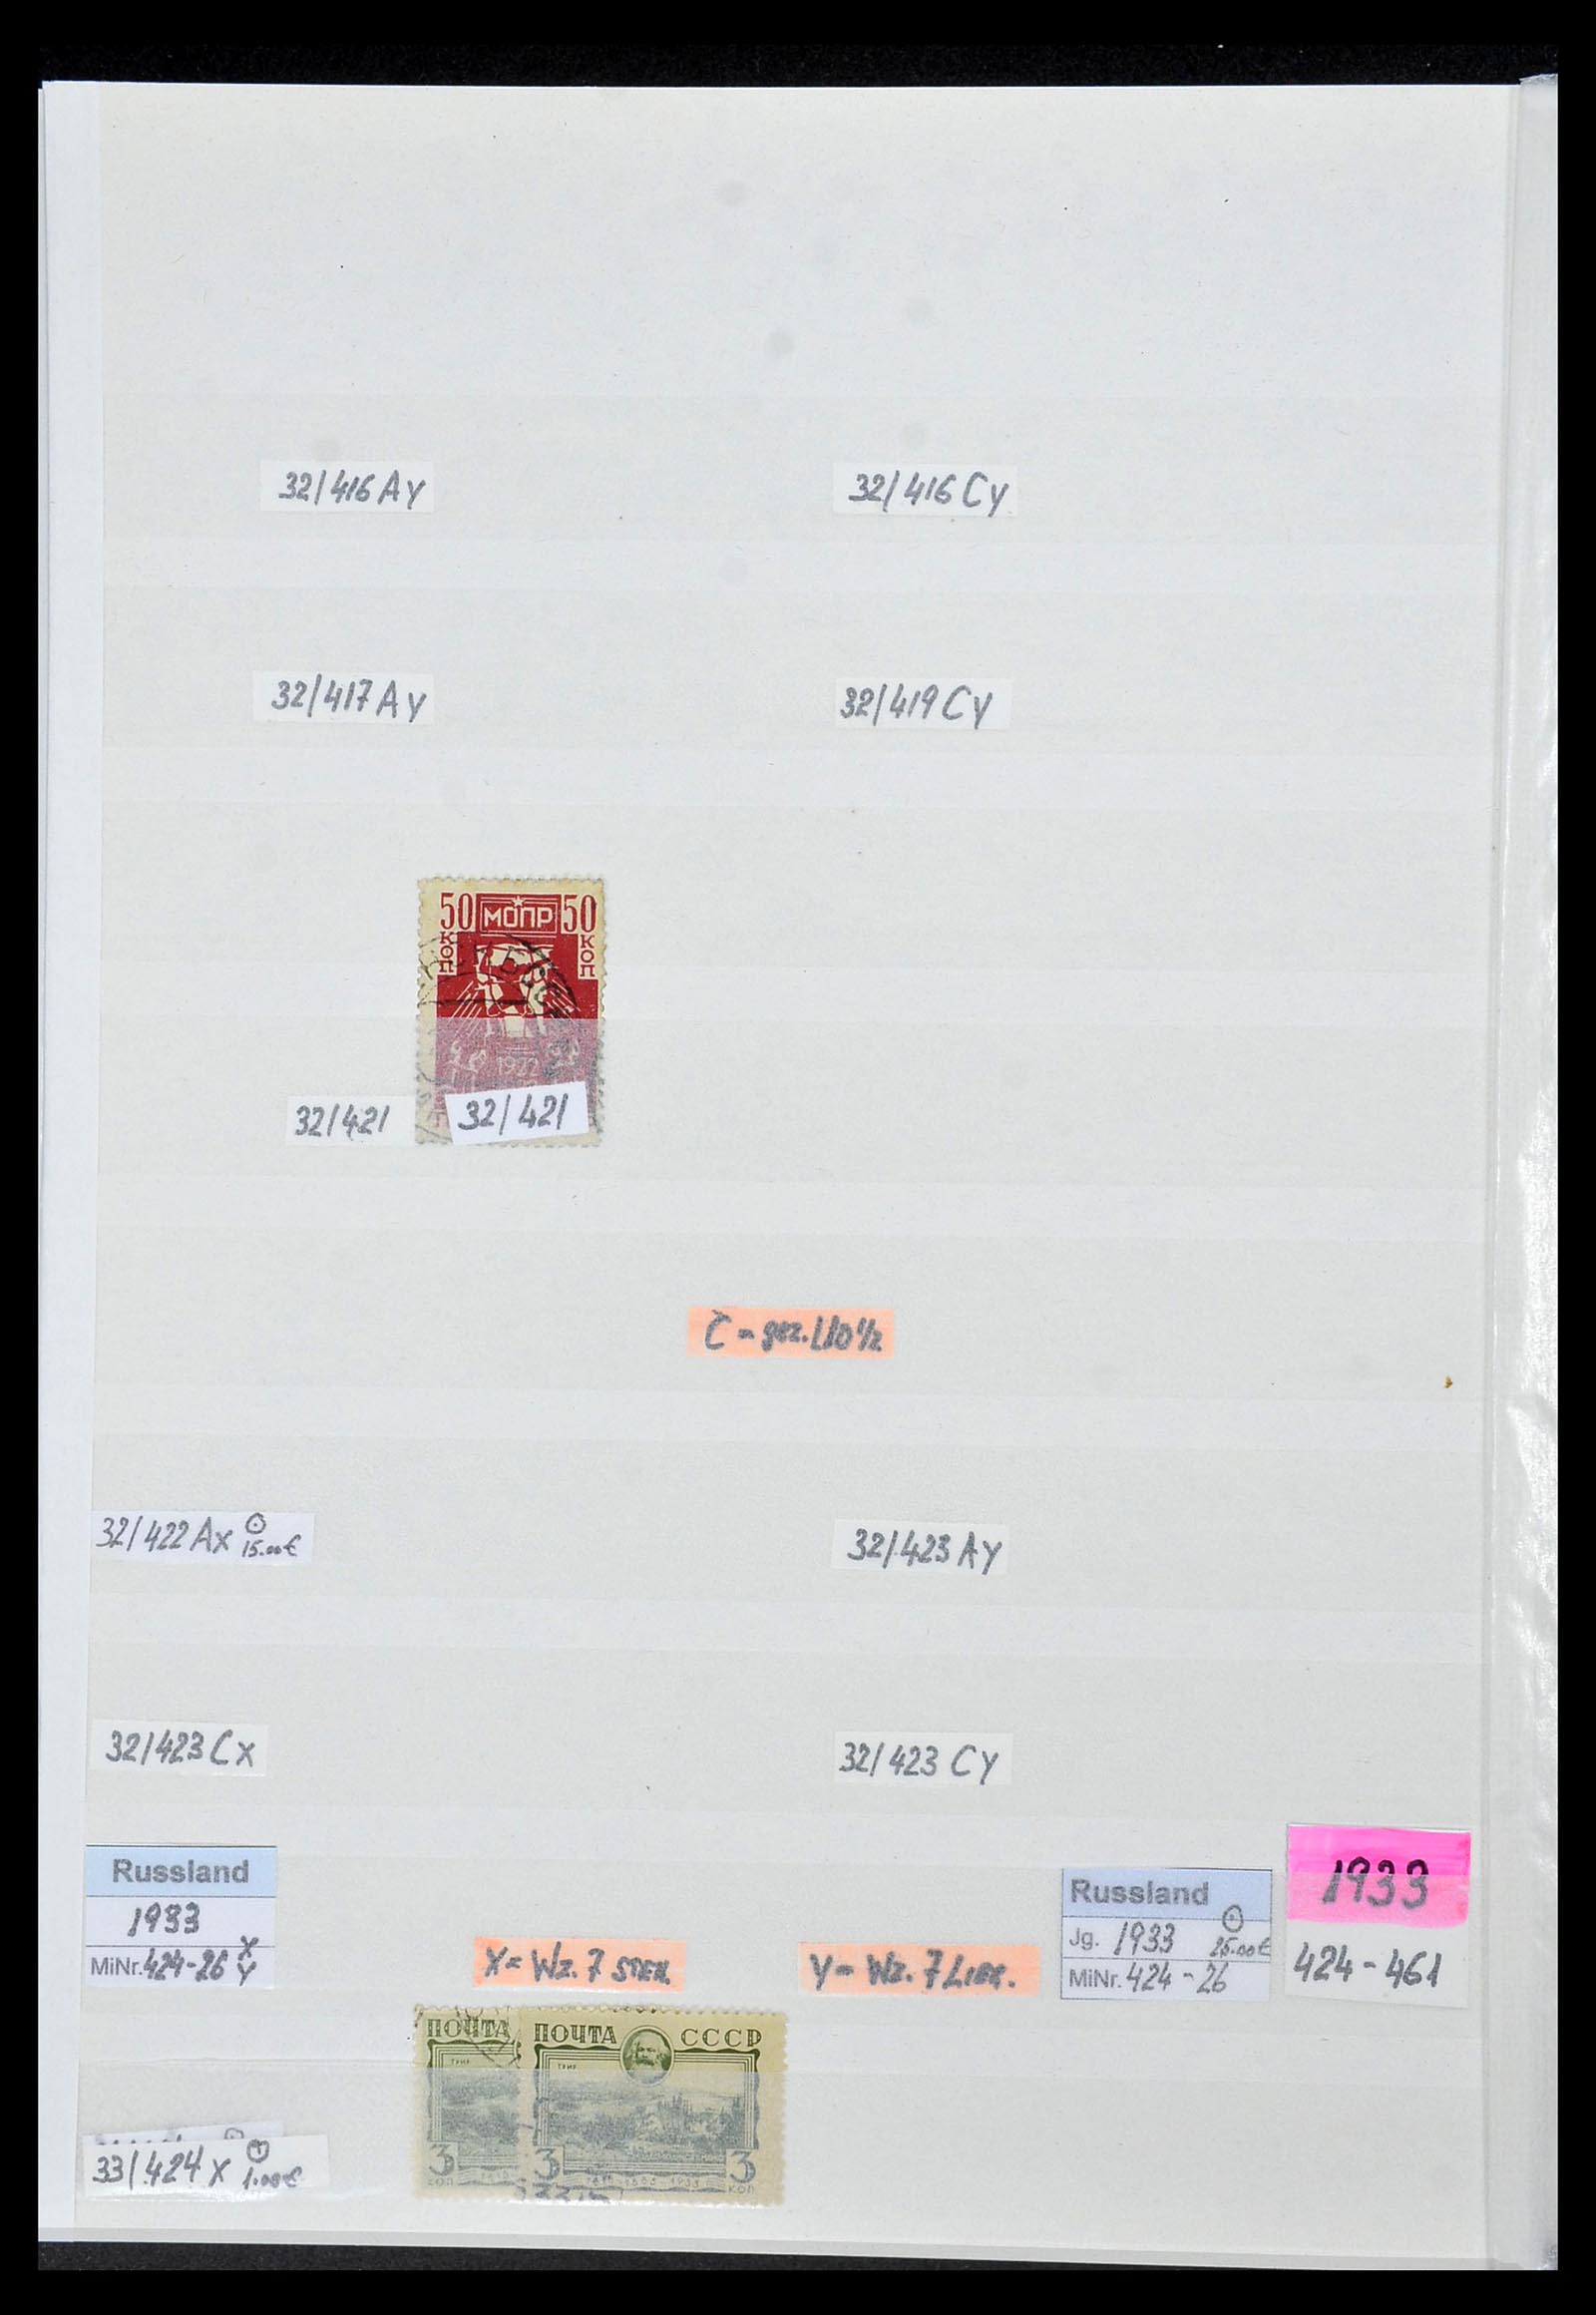 32/416 Ay
32/416 Cy
32/417 Ay
32/419 Cy
50 МОПР 50
КОП
КОП
1922
32/421
32/421
C = gez. L10½
32/422 Ax ⊙
15.00€
32/423 Ay
32/423 Cx
32/423 Cy
Russland
1933
MiNr. 424-26 X Y
X = Wz. 7 STEH.
Y = Wz. 7 LIEG.
Russland
Jg. 1933 ⊙ 25.00€
MiNr. 424-26
1933
424-461
ПОЧТА
ПОЧТА СССР
ТРИР
ТРИР
3
3 3
КОП
КОП
33/424 x ⊙
1.00€